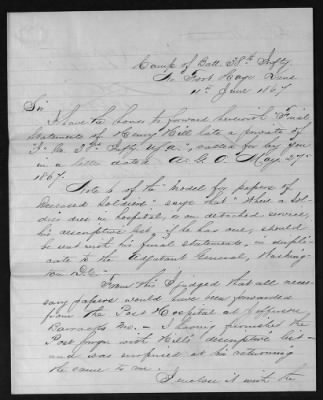 Camp of Batt. 38th Infty
Nr Fort Hays Kans
11th June 1867
Sir
I have the honor to forward herewith "Final
Statements of Henry Hill late a private of
Co. 38th Infty U.S.A.", called for by you
in a letter dated A.G.O. May 27th
1867.
Note 6 of the "Model for papers of
Deceased Soldiers" says that "When a sol-
dier dies in hospital, or on detached service,
his descriptive list, if he has one, should
be sent with his final statements, in dupli-
cate to the Adjutant General, Washing-
ton D.C."
From this I judged that all neces-
sary papers would have been forwarded
from the Post Hospital at Jefferson
Barracks Mo. — I having furnished the
Post Surgn with Hill's descriptive list —
and was surprised at his returning
the same to me.
I enclose it with the